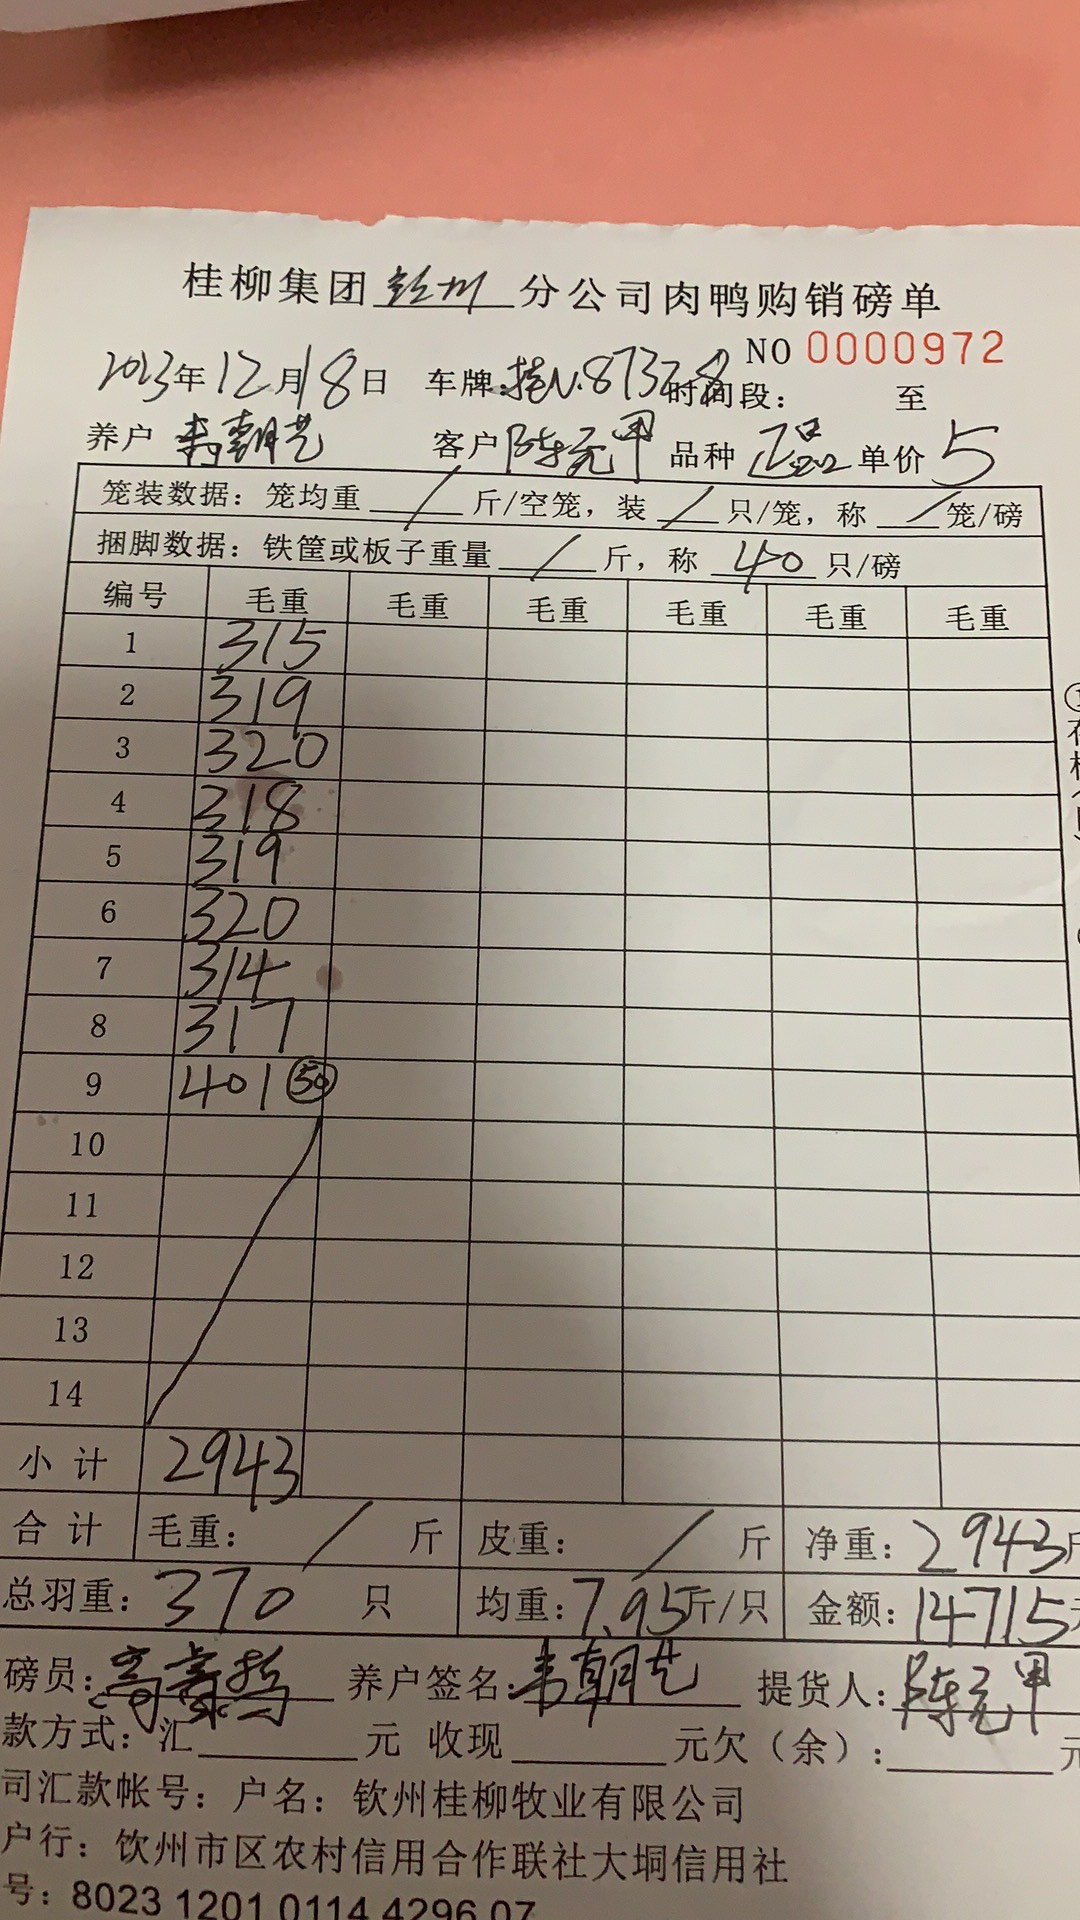 桂柳集团钦州分公司肉鸭购销磅单
NO 0000972
2023年12月18日 车牌:桂N.87328 时间段: 至
养户 韦朝艺 客户 陈元甲 品种 正品 单价 5
笼装数据:笼均重 / 斤/空笼,装 / 只/笼,称 / 笼/磅
捆脚数据:铁筐或板子重量 / 斤,称 40 只/磅
编号 毛重 毛重 毛重 毛重 毛重 毛重
1 315
2 319
3 320
4 318
5 319
6 320
7 314
8 317
9 401 50
10
11
12
13
14
小计 2943
合计 毛重: / 斤 皮重: / 斤 净重:2943斤
总羽重:370 只 均重:7.95斤/只 金额:14715元
磅员: 养户签名:韦朝艺 提货人:陈元甲
款方式:汇 元 收现 元欠(余): 元
司汇款帐号:户名:钦州桂柳牧业有限公司
户行:钦州市区农村信用合作联社大垌信用社
号:8023 1201 0114 4296 07